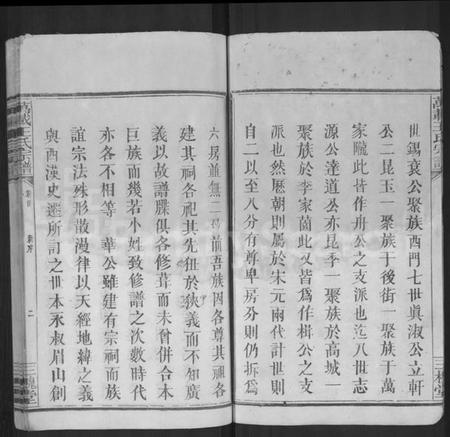 世錫袞公聚族西門七世眞淑公立軒
公二昆玉一聚族于後街一聚族于萬
家隴此皆作舟公之支派也迄八世志
源公達道公亦昆季一聚族於高城一
聚族於李家菌此又皆爲作楫公之支
派也然厯朝則屬於宋元兩代計世則
自二以至八分有尊卑房分則仍拆爲
萬載王氏宗譜
六房並無二 吾族因各尊其禰各
建其祠各祀其先狃於狹義而不知廣
義以故譜牒俱各修葺而未曾併合本
巨族而幾若小姓致修譜之次數時代
亦各不相等 華公雖建有宗祠而族
誼宗法殊形散漫律以天經地緯之義
與西漢史遷所訂之世本永叔眉山創
萬載王氏宗譜
二
三槐堂